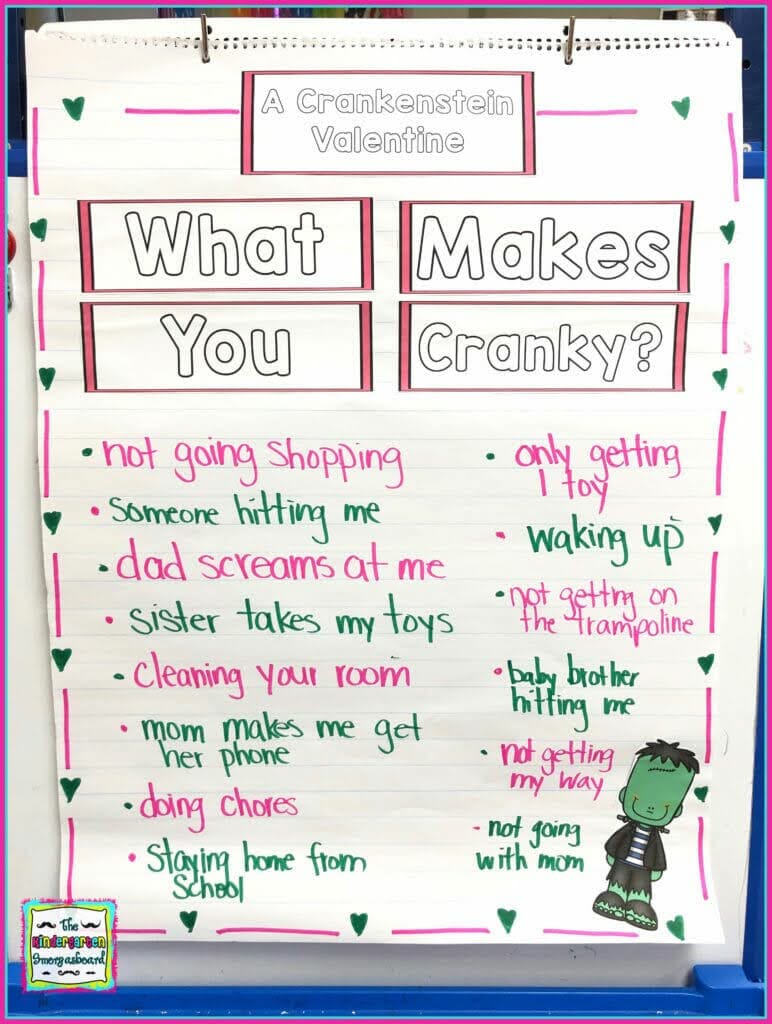 A Crankenstein
Valentine
What Makes
You Cranky?
• not going shopping
• Someone hitting me
• dad screams at me
• sister takes my toys
• cleaning your room
• mom makes me get
her phone
• doing chores
• Staying home from
School
• only getting
1 toy
• waking up
• not gettng on
the trampoline
• baby brother
hitting me
• not getting
my way
- not going
with mom
The
Kindergarten
Smorgasboard